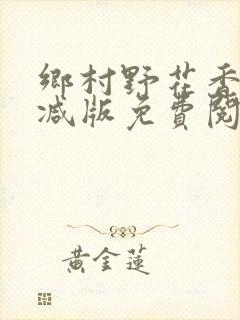 鄉村野花香
减版免費閱
黃金蓮